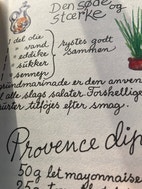 Den søde
og
stærke
1 del olie
1 " vand
1 " eddike
1 " sukker
1 " sennep
rystes godt
sammen
grundmarinade er den anven
l alle slags salater. Forskellige
urter tilføjes efter smag.
Provence dip
50 g let mayonnaise